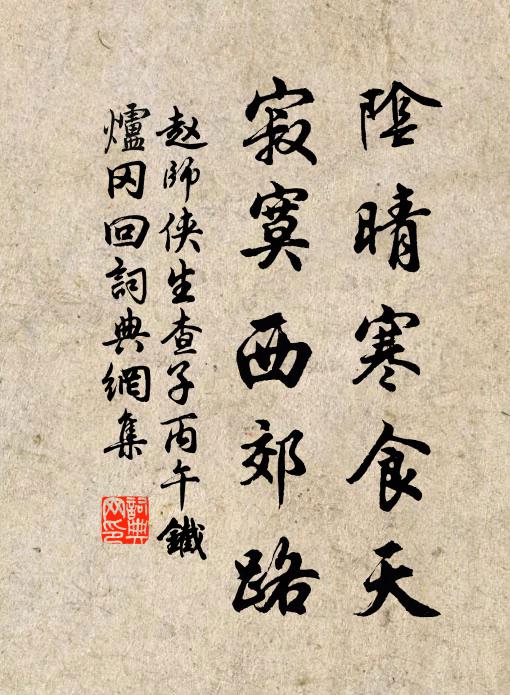 陰晴寒食天
寂寞西郊路
赵師侠生查子丙午鐵
爐冈回詞典網集
詞典网印